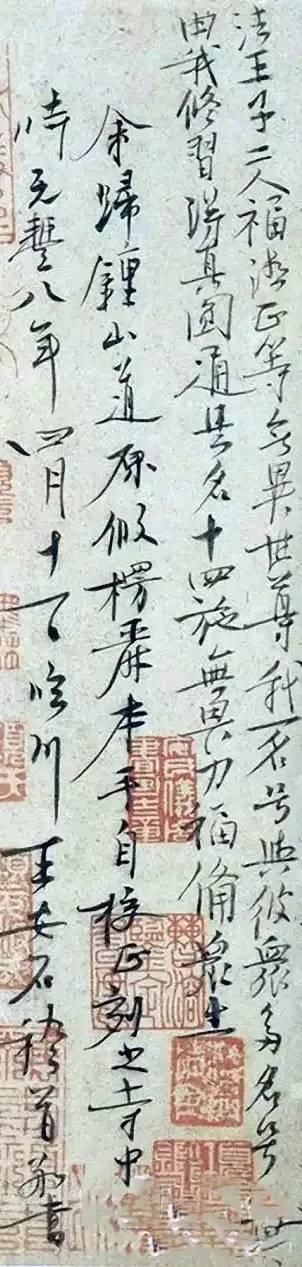 法王子二人福德正等無異世尊我一名号與彼衆多名号
由我修習得真圓通是名十四施無畏力福備衆生
余歸鍾山道原假楞嚴本手自校正刻之寺中
時元豐八年四月十一日臨川王安石稽首敬書